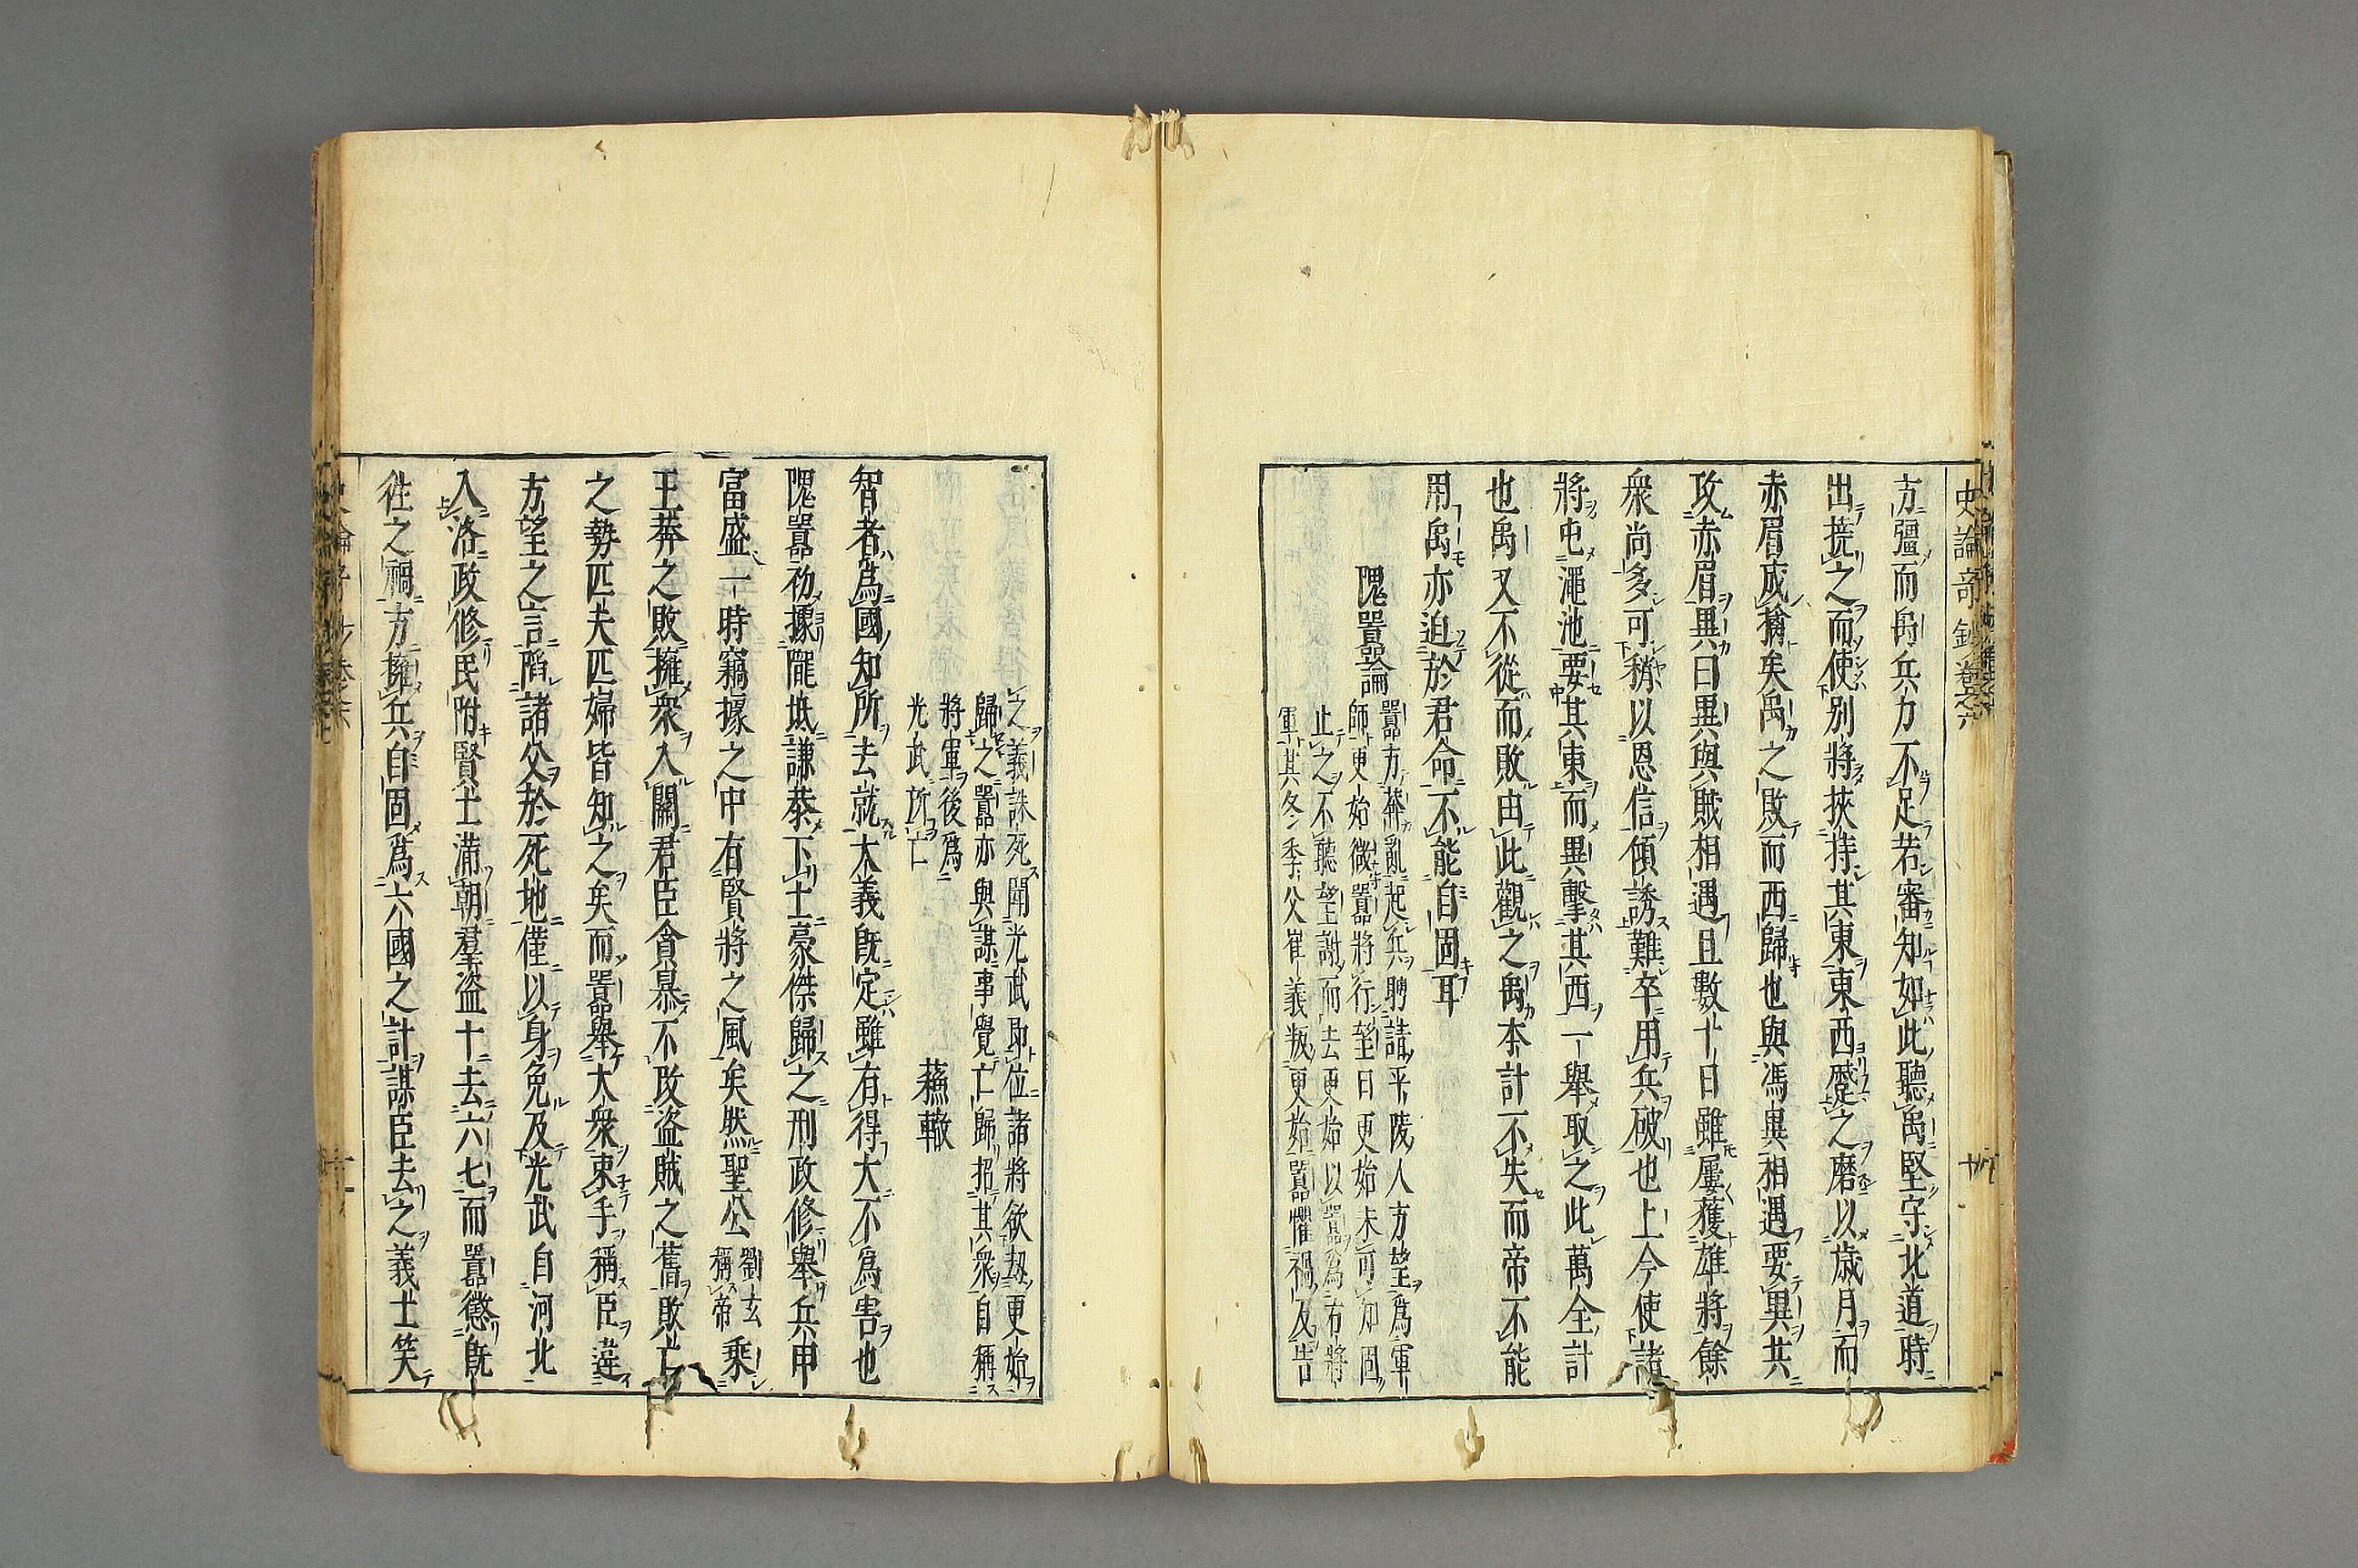 史論奇鈔卷之六
方彊而禹兵力不足若審知如此聽禹堅守北道時
出撓之而使別將挾持其東東西蹙之磨以歲月而
赤眉成擒矣禹之敗而西歸也與馮異相遇要異共
攻赤眉異曰異與賊相遇且數十日雖屢獲雄將餘
衆尚多可稍以恩信傾誘難卒用兵破也上今使諸
將屯澠池要其東而異擊其西一舉取之此萬全計
也禹又不從而敗由此觀之禹本計不失而帝不能
用禹亦迫於君命不能自固耳
隗囂論
囂方莽亂起兵聘請平陵人方望爲軍
師更始徵囂將行望曰更始未可知固
止之不聽望謝而去更始以囂爲右將
軍其冬季父崔義叛更始囂懼禍及告
之義誅死聞光武即位諸將欲劫更始
歸之囂亦與謀事覺亡歸招其衆自稱
將軍後爲
光武所亡
蘇轍
智者爲國知所去就大義旣定雖有得大不爲害也
隗囂初據隴坻謙恭下士豪傑歸之刑政修舉兵甲
富盛一時竊據之中有賢將之風矣然聖公劉玄稱帝乘
王莽之敗擁衆入關君臣貪暴不改盜賊之舊敗亡
之勢匹夫匹婦皆知之矣而囂舉大衆束手稱臣違
方望之言陷諸父於死地僅以身免及光武自河北
入洛政修民附賢士滿朝羣盜十去六七而囂懲旣
往之禍方擁兵自固爲六國之計謀臣去之義士笑